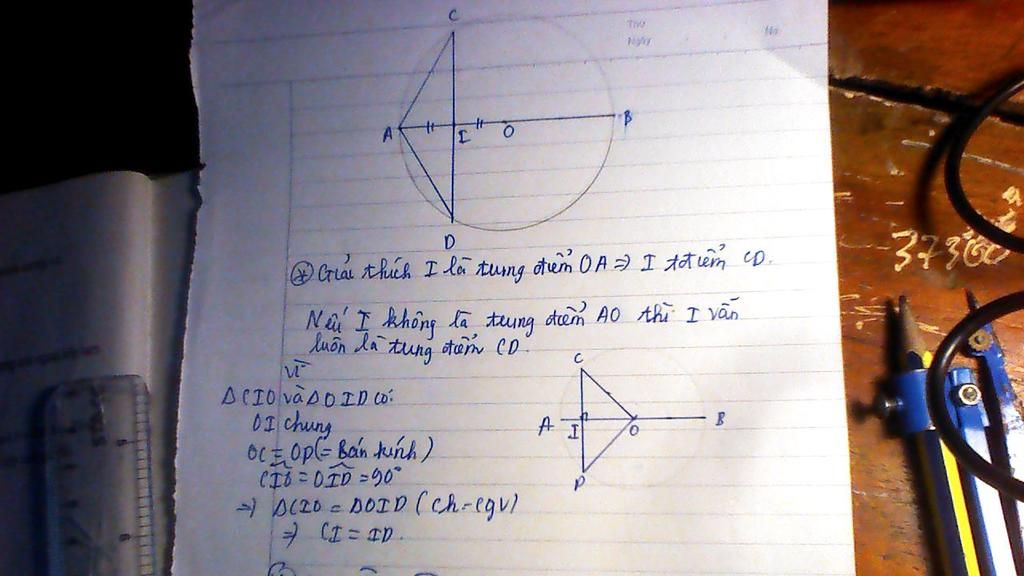 C
Thứ
Ngày
No
A I O B
D
⊛ Giải thích I là tung điểm OA ⇒ I tđiểm CD.
Nếu I không là trung điểm AO thì I vẫn
luôn là tung điểm CD.
vì
ΔCIO và ΔOID có:
OI chung
OC = OD (= Bán kính)
CIO = OID = 90°
⇒ ΔCIO = ΔOID (ch - cgv)
⇒ CI = ID.
C
A I O B
D